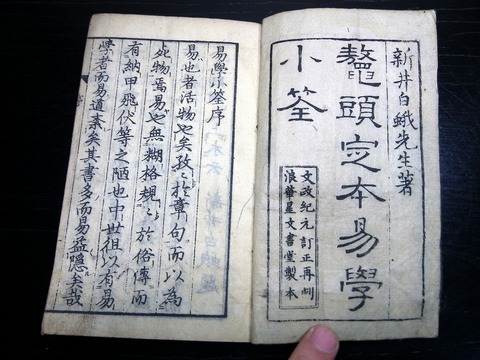 新井白蛾先生著
鼇頭定本易學
小筌
文政紀元訂正再刪
浪華星文書堂製本
易學小筌序
易也者活物也矣孜〻於章句而以為
死物焉易也無糊格規〻於俗傳而
有納甲飛伏等之陋也中世徂以有易
學者而易道紊矣其書多而易益隱矣哉